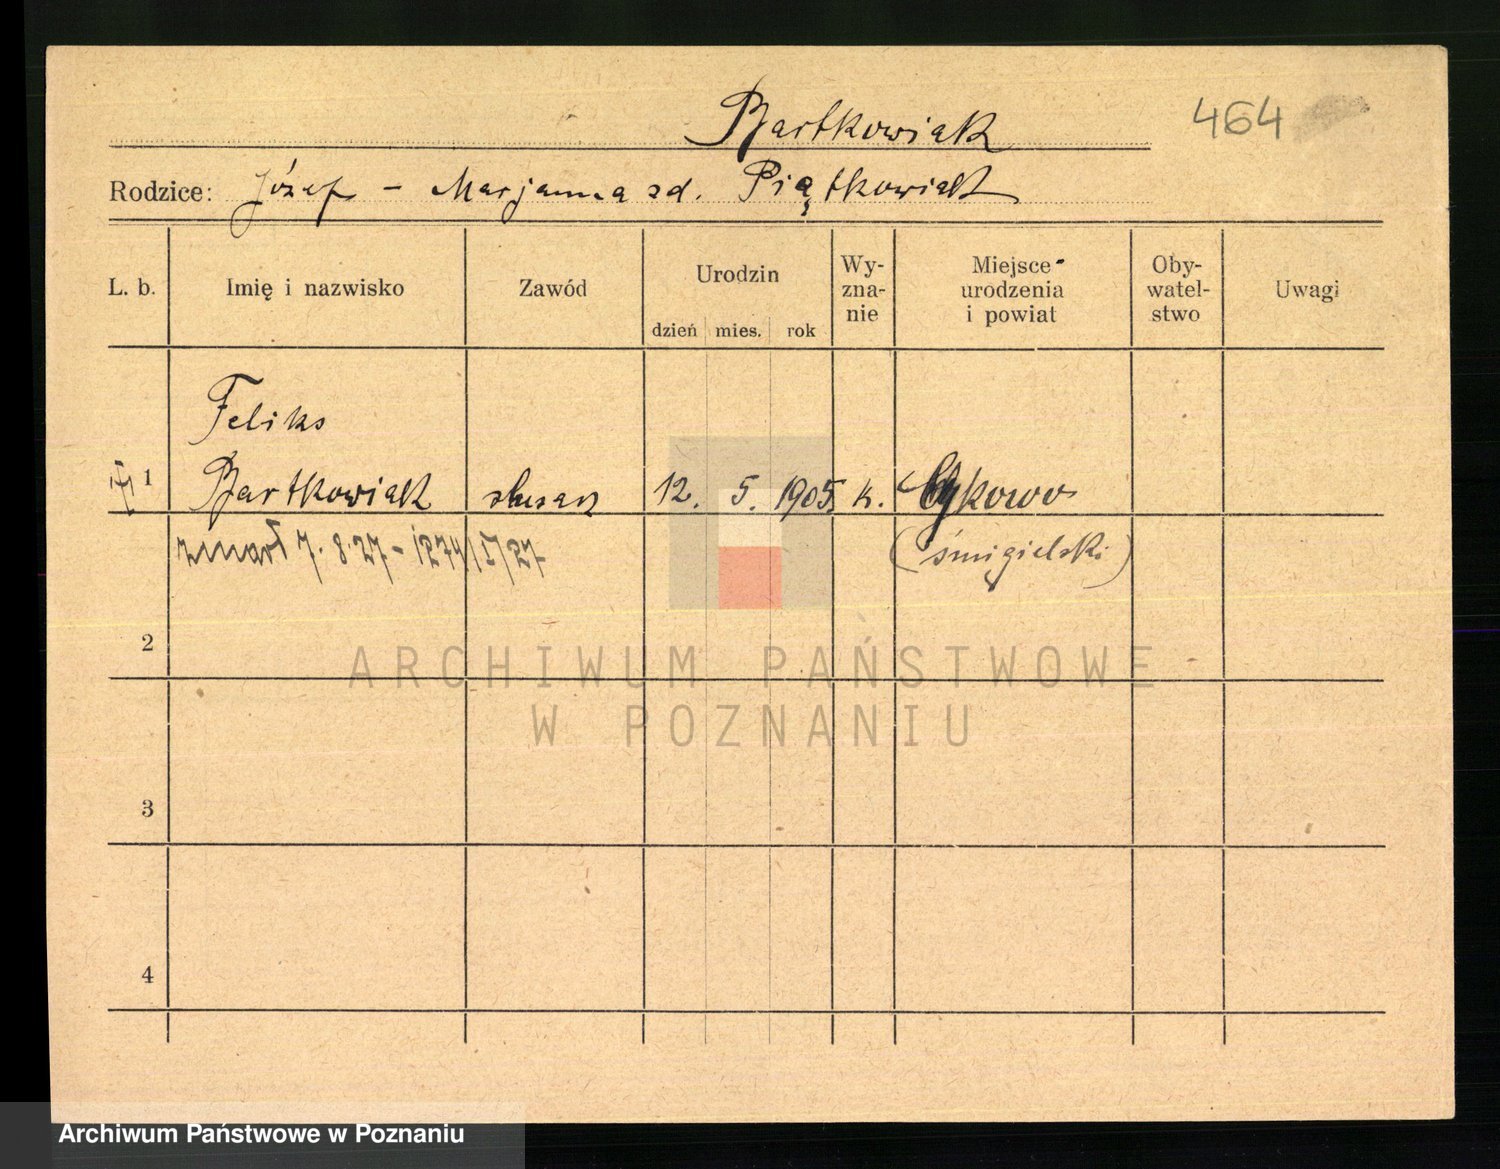 Bartkowiak
464
Rodzice: Józef - Marjanna zd. Piątkowiak
L. b. Imię i nazwisko Zawód Urodzin dzień mies. rok Wy-
zna-
nie Miejsce
urodzenia
i powiat Oby-
watel-
stwo Uwagi
Feliks
1 Bartkowiak ślusarz 12. 5. 1905. k. Cykowo
zmarł 7.8.27 - 1274/I/27 (śmigielski)
2
3
4
ARCHIWUM PAŃSTWOWE
W POZNANIU
Archiwum Państwowe w Poznaniu